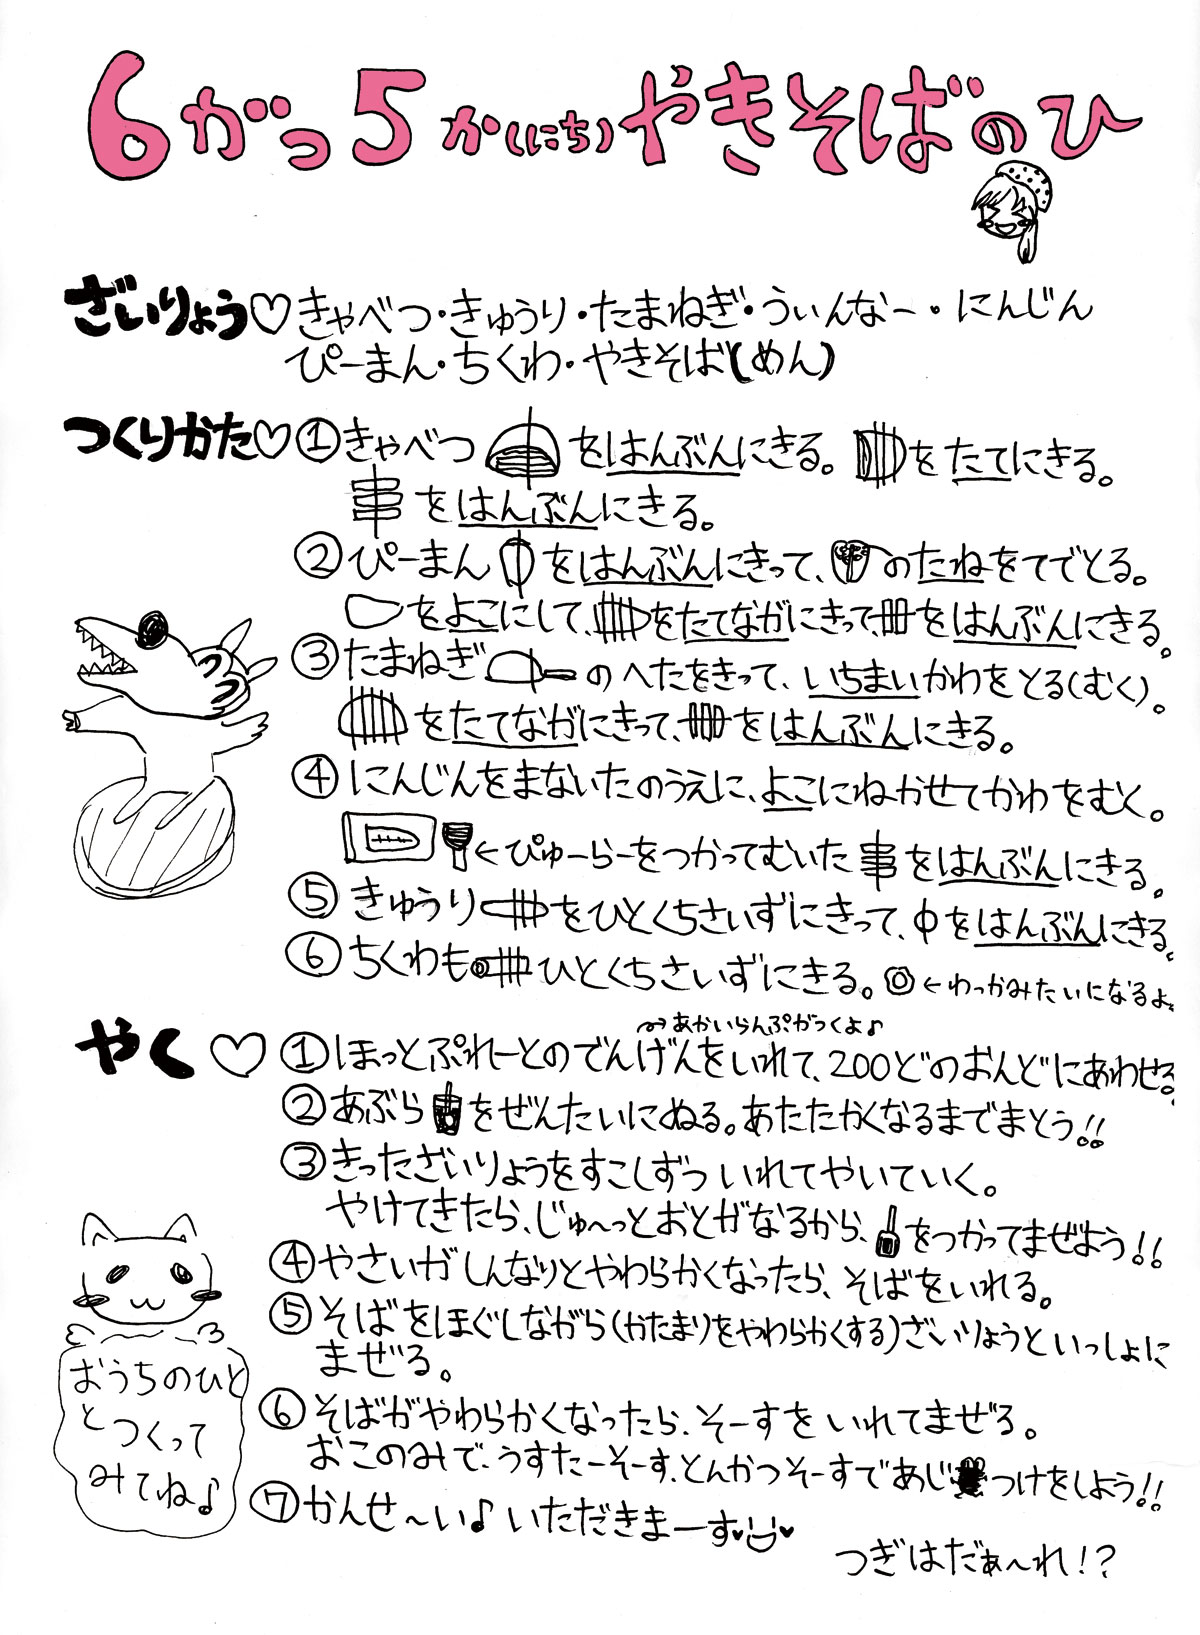 6がつ5か(にち)やきそばのひ
ざいりょう♡きゃべつ・きゅうり・たまねぎ・うぃんなー・にんじん
ぴーまん・ちくわ・やきそば(めん)
つくりかた♡①きゃべつをはんぶんにきる。をたてにきる。
をはんぶんにきる。
②ぴーまんをはんぶんにきって、のたねをてでとる。
をよこにして、をたてながにきって、をはんぶんにきる。
③たまねぎのへたをきって、いちまいかわをとる(むく)。
をたてながにきって、をはんぶんにきる。
④にんじんをまないたのうえに、よこにねかせてかわをむく。
←ぴゅーらーをつかってむいたをはんぶんにきる。
⑤きゅうりをひとくちさいずにきって、をはんぶんにきる。
⑥ちくわもひとくちさいずにきる。←わっかみたいになるよ。
→あかいらんぷがつくよ♪
やく♡①ほっとぷれーとのでんげんをいれて、200どのおんどにあわせる。
②あぶらをぜんたいにぬる。あたたかくなるまでまとう!!
③きったざいりょうをすこしずついれてやいていく。
やけてきたら、じゅ〜っとおとがなるから、をつかってまぜよう!!
④やさいがしんなりとやわらかくなったら、そばをいれる。
⑤そばをほぐしながら(かたまりをやわらかくする)ざいりょうといっしょに
まぜる。
⑥そばがやわらかくなったら、そーすをいれてまぜる。
おこのみで、うすたーそーす、とんかつそーすであじつけをしよう!!
⑦かんせ〜い♪いただきまーす♥♥
つぎはだぁ〜れ!?
おうちのひと
とつくって
みてね♪